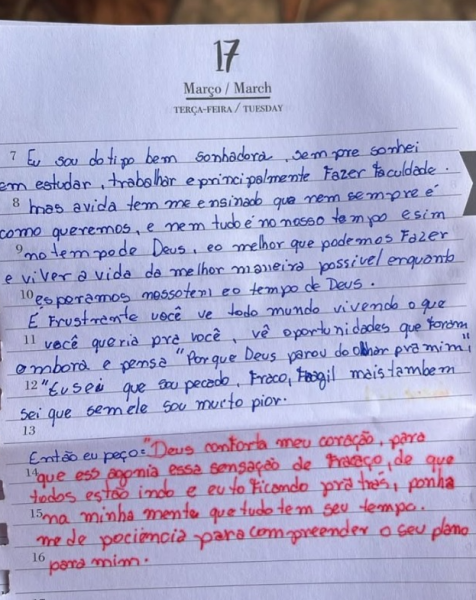 17
Março / March
TERÇA-FEIRA / TUESDAY
7 Eu sou do tipo bem sonhadora, sempre sonhei
em estudar, trabalhar e principalmente Fazer Faculdade.
8 mas a vida tem me ensinado que nem sempre é
como queremos, e nem tudo é no nosso tempo e sim
9 no tempo de Deus, e o melhor que podemos Fazer
e viver a vida da melhor maneira possivel enquanto
10 esperamos nosso e o tempo de Deus.
É Frustrante você ve todo mundo vivendo o que
11 você queria pra você, vê oportunidades que foram
embora e pensa "Porque Deus parou do olhar pra mim",
12 "Eu sei que sou pecado, Fraco, Fragil mais tambem
sei que sem ele sou muito pior.
13
Então eu peço: "Deus conforta meu coração, para
14 que essa agonia essa sensação de de que
todos estão indo e eu to Ficando pra tras, ponha
15 na minha mente que tudo tem seu tempo.
me de paciencia para compreender o seu plano
16 para mim.